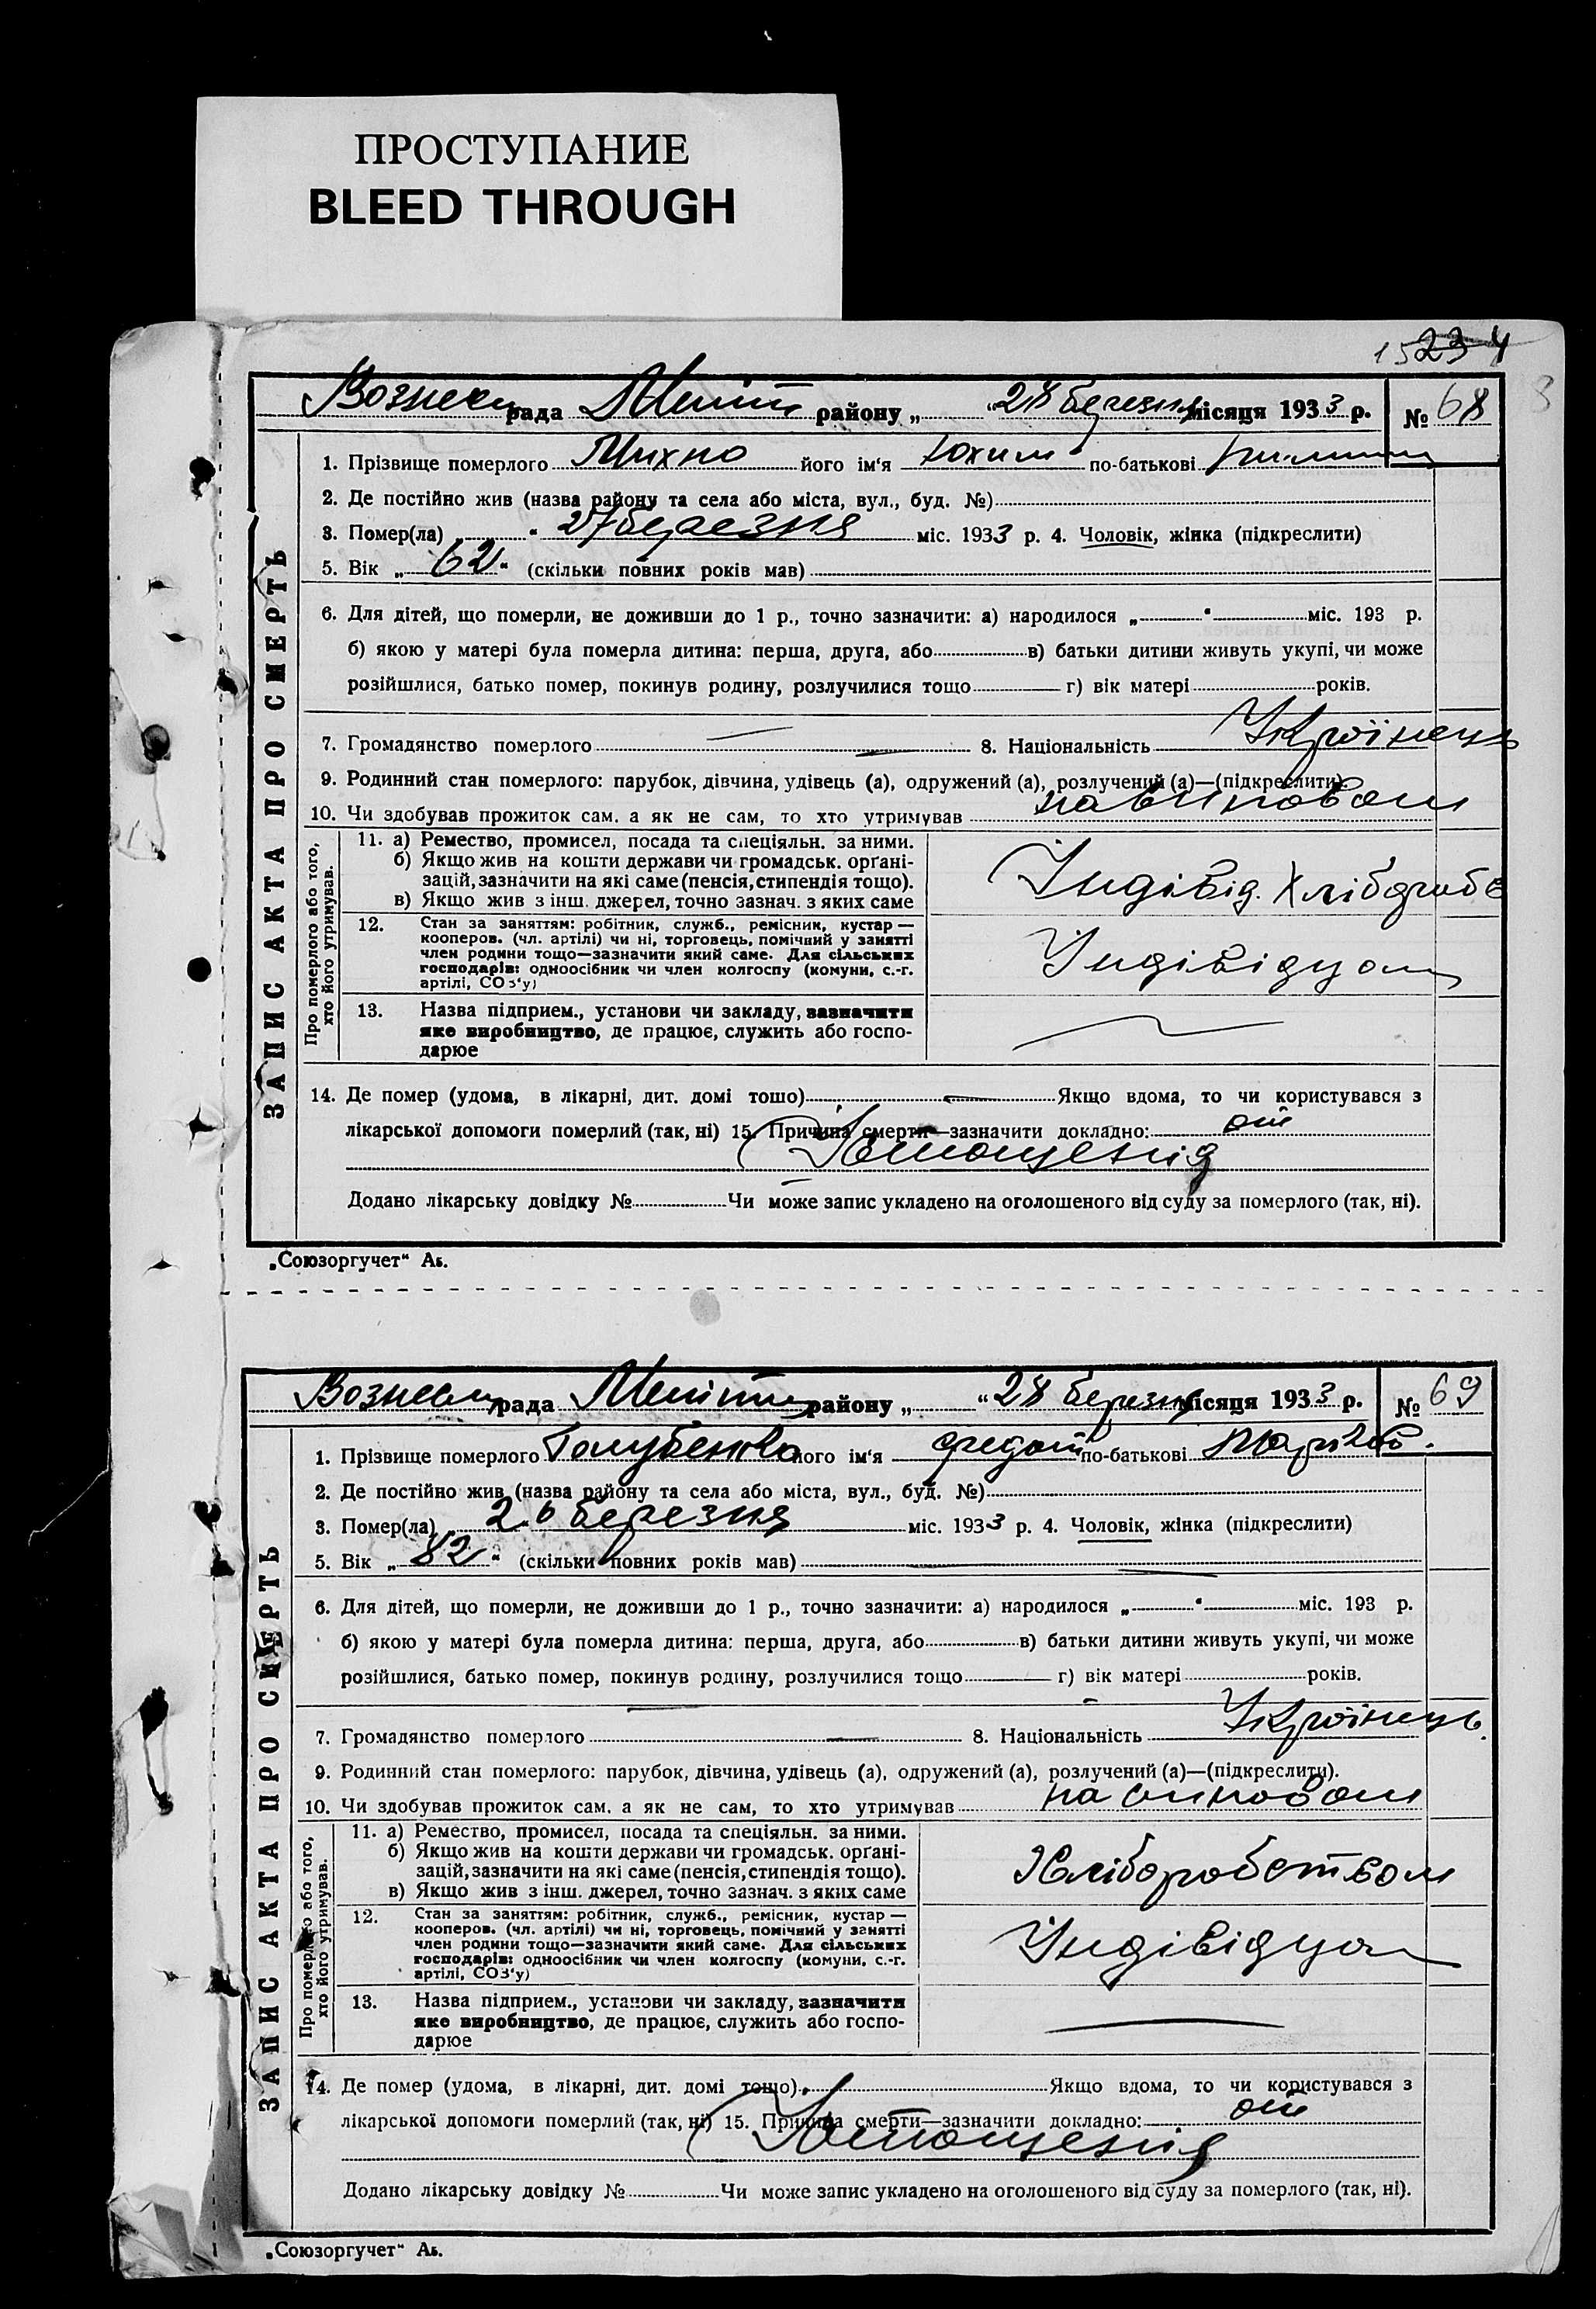 ПРОСТУПАНИЕ
BLEED THROUGH
15 23 4
рада района „ “ 28 березня місяця 1933 р. № 68
1. Прізвище померлого Михно його ім‘я Юхим по-батькові
2. Де постійно жив (назва району та села або міста, вул., буд. №)
3. Помер(ла) „ “ 27 березня міс. 1933 р. 4. Чоловік, жінка (підкреслити)
5. Вік „ 62 “ (скільки повних років мав)
6. Для дітей, що померли, не доживши до 1 р., точно зазначити: а) народилося „ “ міс. 193 р.
б) якою у матері була померла дитина: перша, друга, або в) батьки дитини живуть укупі, чи може
розійшлися, батько помер, покинув родину, розлучилися тощо г) вік матері років.
7. Громадянство померлого 8. Національність Українець
9. Родинний стан померлого: парубок, дівчина, удівець (а), одружений (а), розлучений (а)—(підкреслити).
10. Чи здобував прожиток сам, а як не сам, то хто утримував
ЗАПИС АКТА ПРО СМЕРТЬ
Про померлого або того, хто його утримував.
11. а) Ремество, промисел, посада та спеціяльн. за ними.
б) Якщо жив на кошти держави чи громадськ. орґані-
зацій, зазначити на які саме (пенсія, стипендія тощо).
в) Якщо жив з інш. джерел, точно зазнач. з яких саме
Індівід. Хлібороб
12. Стан за заняттям: робітник, служб., ремісник, кустар —
кооперов. (чл. артілі) чи ні, торговець, помічний у занятті
член родини тощо—зазначити який саме. Для сільських
господарів: одноосібник чи член колгоспу (комуни, с.-г.
артілі, СОЗ‘у)
Індівідуал
13. Назва підприєм., установи чи закладу, зазначити
яке виробництво, де працює, служить або госпо-
дарює
14. Де помер (удома, в лікарні, дит. домі тощо) Якщо вдома, то чи користувався з
лікарської допомоги померлий (так, ні) 15. Причина смерти—зазначити докладно: от
Істощенія
Додано лікарську довідку № Чи може запис укладено на оголошеного від суду за померлого (так, ні).
„Союзоргучет“ Аб.
рада району „ “ 28 березня місяця 1933 р. № 69
1. Прізвище померлого Голубенко його ім‘я Федот по-батькові Марков.
2. Де постійно жив (назва району та села або міста, вул., буд. №)
3. Помер(ла) 26 березня міс. 1933 р. 4. Чоловік, жінка (підкреслити)
5. Вік „ 82 “ (скільки повних років мав)
6. Для дітей, що померли, не доживши до 1 р., точно зазначити: а) народилося „ “ міс. 193 р.
б) якою у матері була померла дитина: перша, друга, або в) батьки дитини живуть укупі, чи може
розійшлися, батько помер, покинув родину, розлучилися тощо г) вік матері років.
7. Громадянство померлого 8. Національність Українець.
9. Родинний стан померлого: парубок, дівчина, удівець (а), одружений (а), розлучений (а)—(підкреслити).
10. Чи здобував прожиток сам, а як не сам, то хто утримував
ЗАПИС АКТА ПРО СМЕРТЬ
Про померлого або того, хто його утримував.
11. а) Ремество, промисел, посада та спеціяльн. за ними.
б) Якщо жив на кошти держави чи громадськ. орґані-
зацій, зазначити на які саме (пенсія, стипендія тощо).
в) Якщо жив з інш. джерел, точно зазнач. з яких саме
Хліборобством
12. Стан за заняттям: робітник, служб., ремісник, кустар —
кооперов. (чл. артілі) чи ні, торговець, помічний у занятті
член родини тощо—зазначити який саме. Для сільських
господарів: одноосібник чи член колгоспу (комуни, с.-г.
артілі, СОЗ‘у)
Індівідуал
13. Назва підприєм., установи чи закладу, зазначити
яке виробництво, де працює, служить або госпо-
дарює
14. Де помер (удома, в лікарні, дит. домі тощо) Якщо вдома, то чи користувався з
лікарської допомоги померлий (так, ні) 15. Причина смерти—зазначити докладно: от
Істощенія
Додано лікарську довідку № Чи може запис укладено на оголошеного від суду за померлого (так, ні).
„Союзоргучет“ Аб.